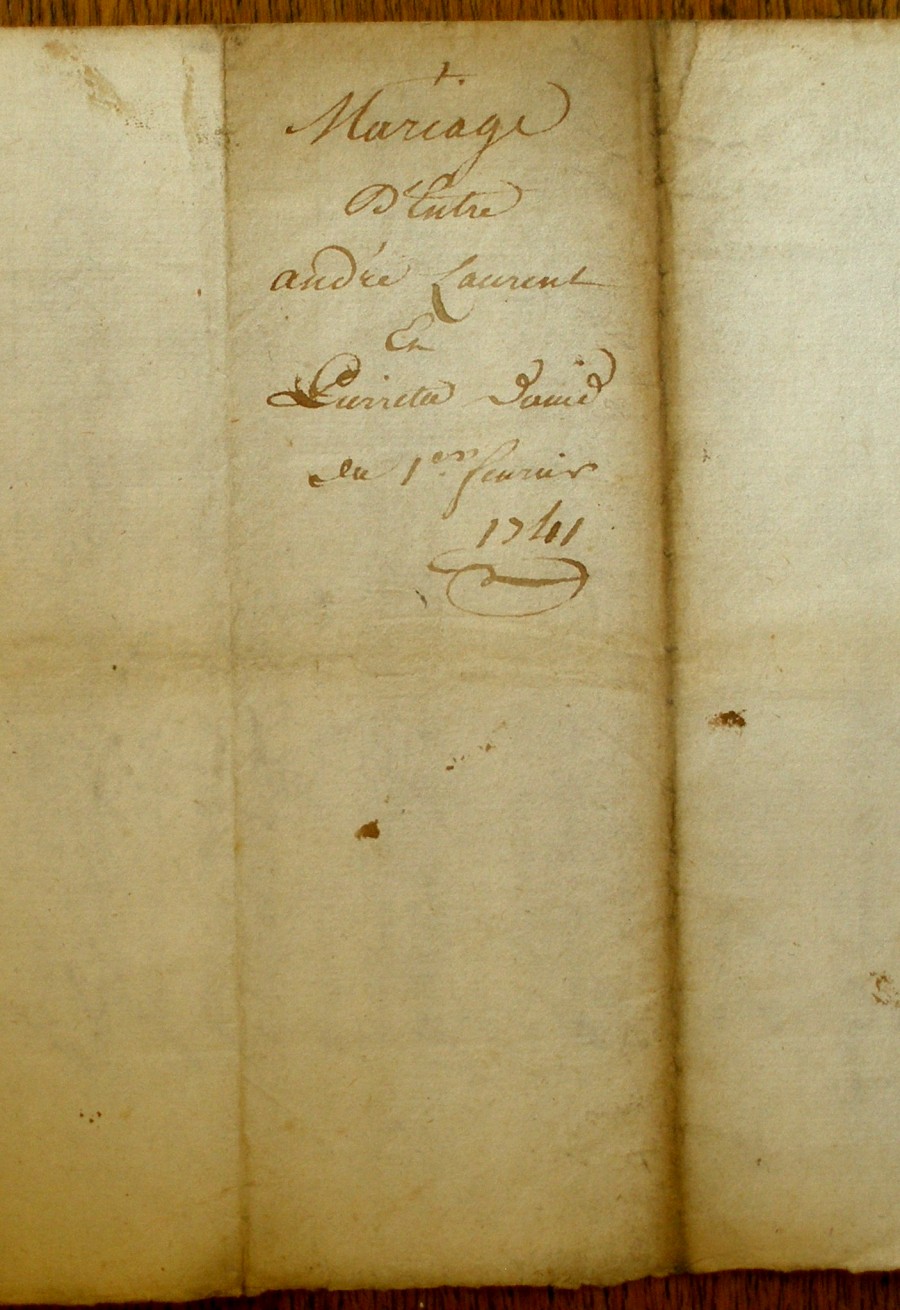 1.
Mariage
D'Entre
andré Laurent
Et
Pierrette David
du 1er fevrier
1741